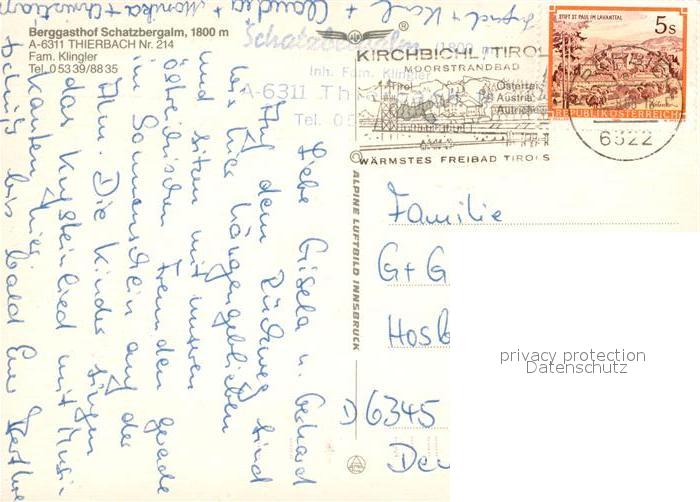 Berggasthof Schatzbergalm, 1800 m
A-6311 THIERBACH Nr. 214
Fam. Klingler
Tel. 05339/8835
Schatzbergalm 1800 m
Inh. Fam. Klingler
A-6311 Th
Tel. 05
KIRCHBICHL/TIROL
MOORSTRANDBAD
Tirol
Österrei
Austria
Autriche
WÄRMSTES FREIBAD TIROLS
STIFT ST. PAUL IM LAVANTTAL
5s
REPUBLIK ÖSTERREICH
6322
ALPINE LUFTBILD INNSBRUCK
Liebe Gisela u. Gerhard
Auf dem Rückweg sind
wir hier hängengeblieben
und sitzen mit unseren
österreichischen Freunden gerade
im Sonnenschein auf der
Alm. Die Kinder singen
das Kufsteinlied mit Musi-
kanten hier.
Tschüß bis bald Eure
Claudia + Monika + Christian
Familie
G + G
Hosb
D 6345
Deu
privacy protection
Datenschutz